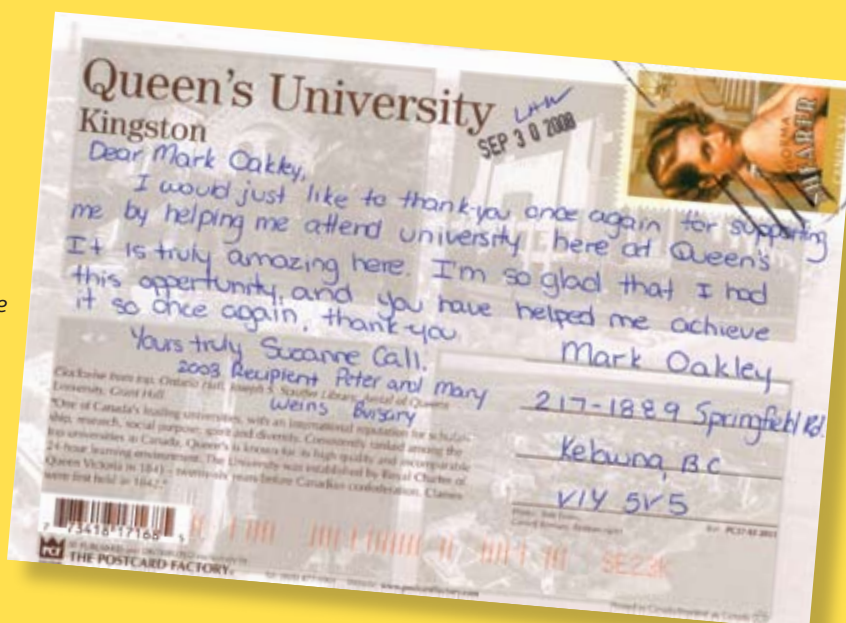 Queen's University
Kingston
LAW
SEP 3 0 2008
NORMA
SHEARER
Dear Mark Oakley,
I would just like to thank-you once again for supporting
me by helping me attend university here at Queen's
It is truly amazing here. I'm so glad that I had
this oppertunity, and you have helped me achieve
it so once again, thank-you.
Yours truly Suzanne Call.
2003 Recipient Peter and Mary
Weins Bursary
Mark Oakley
217-1889 Springfield Rd.
Kelowna, BC
V1Y 5V5
Clockwise from top, Ontario Hall, Joseph S. Stauffer Library, Aerial of Queen's
University, Grant Hall
"One of Canada's leading universities, with an international reputation for scholar-
ship, research, social purpose, spirit and diversity. Consistently ranked among the
top universities in Canada, Queen's is known for its high quality and incomparable
24-hour learning environment. The University was established by Royal Charter of
Queen Victoria in 1841 - twenty-six years before Canadian confederation. Classes
were first held in 1842."
7 73418 17168 5
PCF
THE POSTCARD FACTORY
www.postcardfactory.com
Printed in Canada/Imprimé au Canada
e